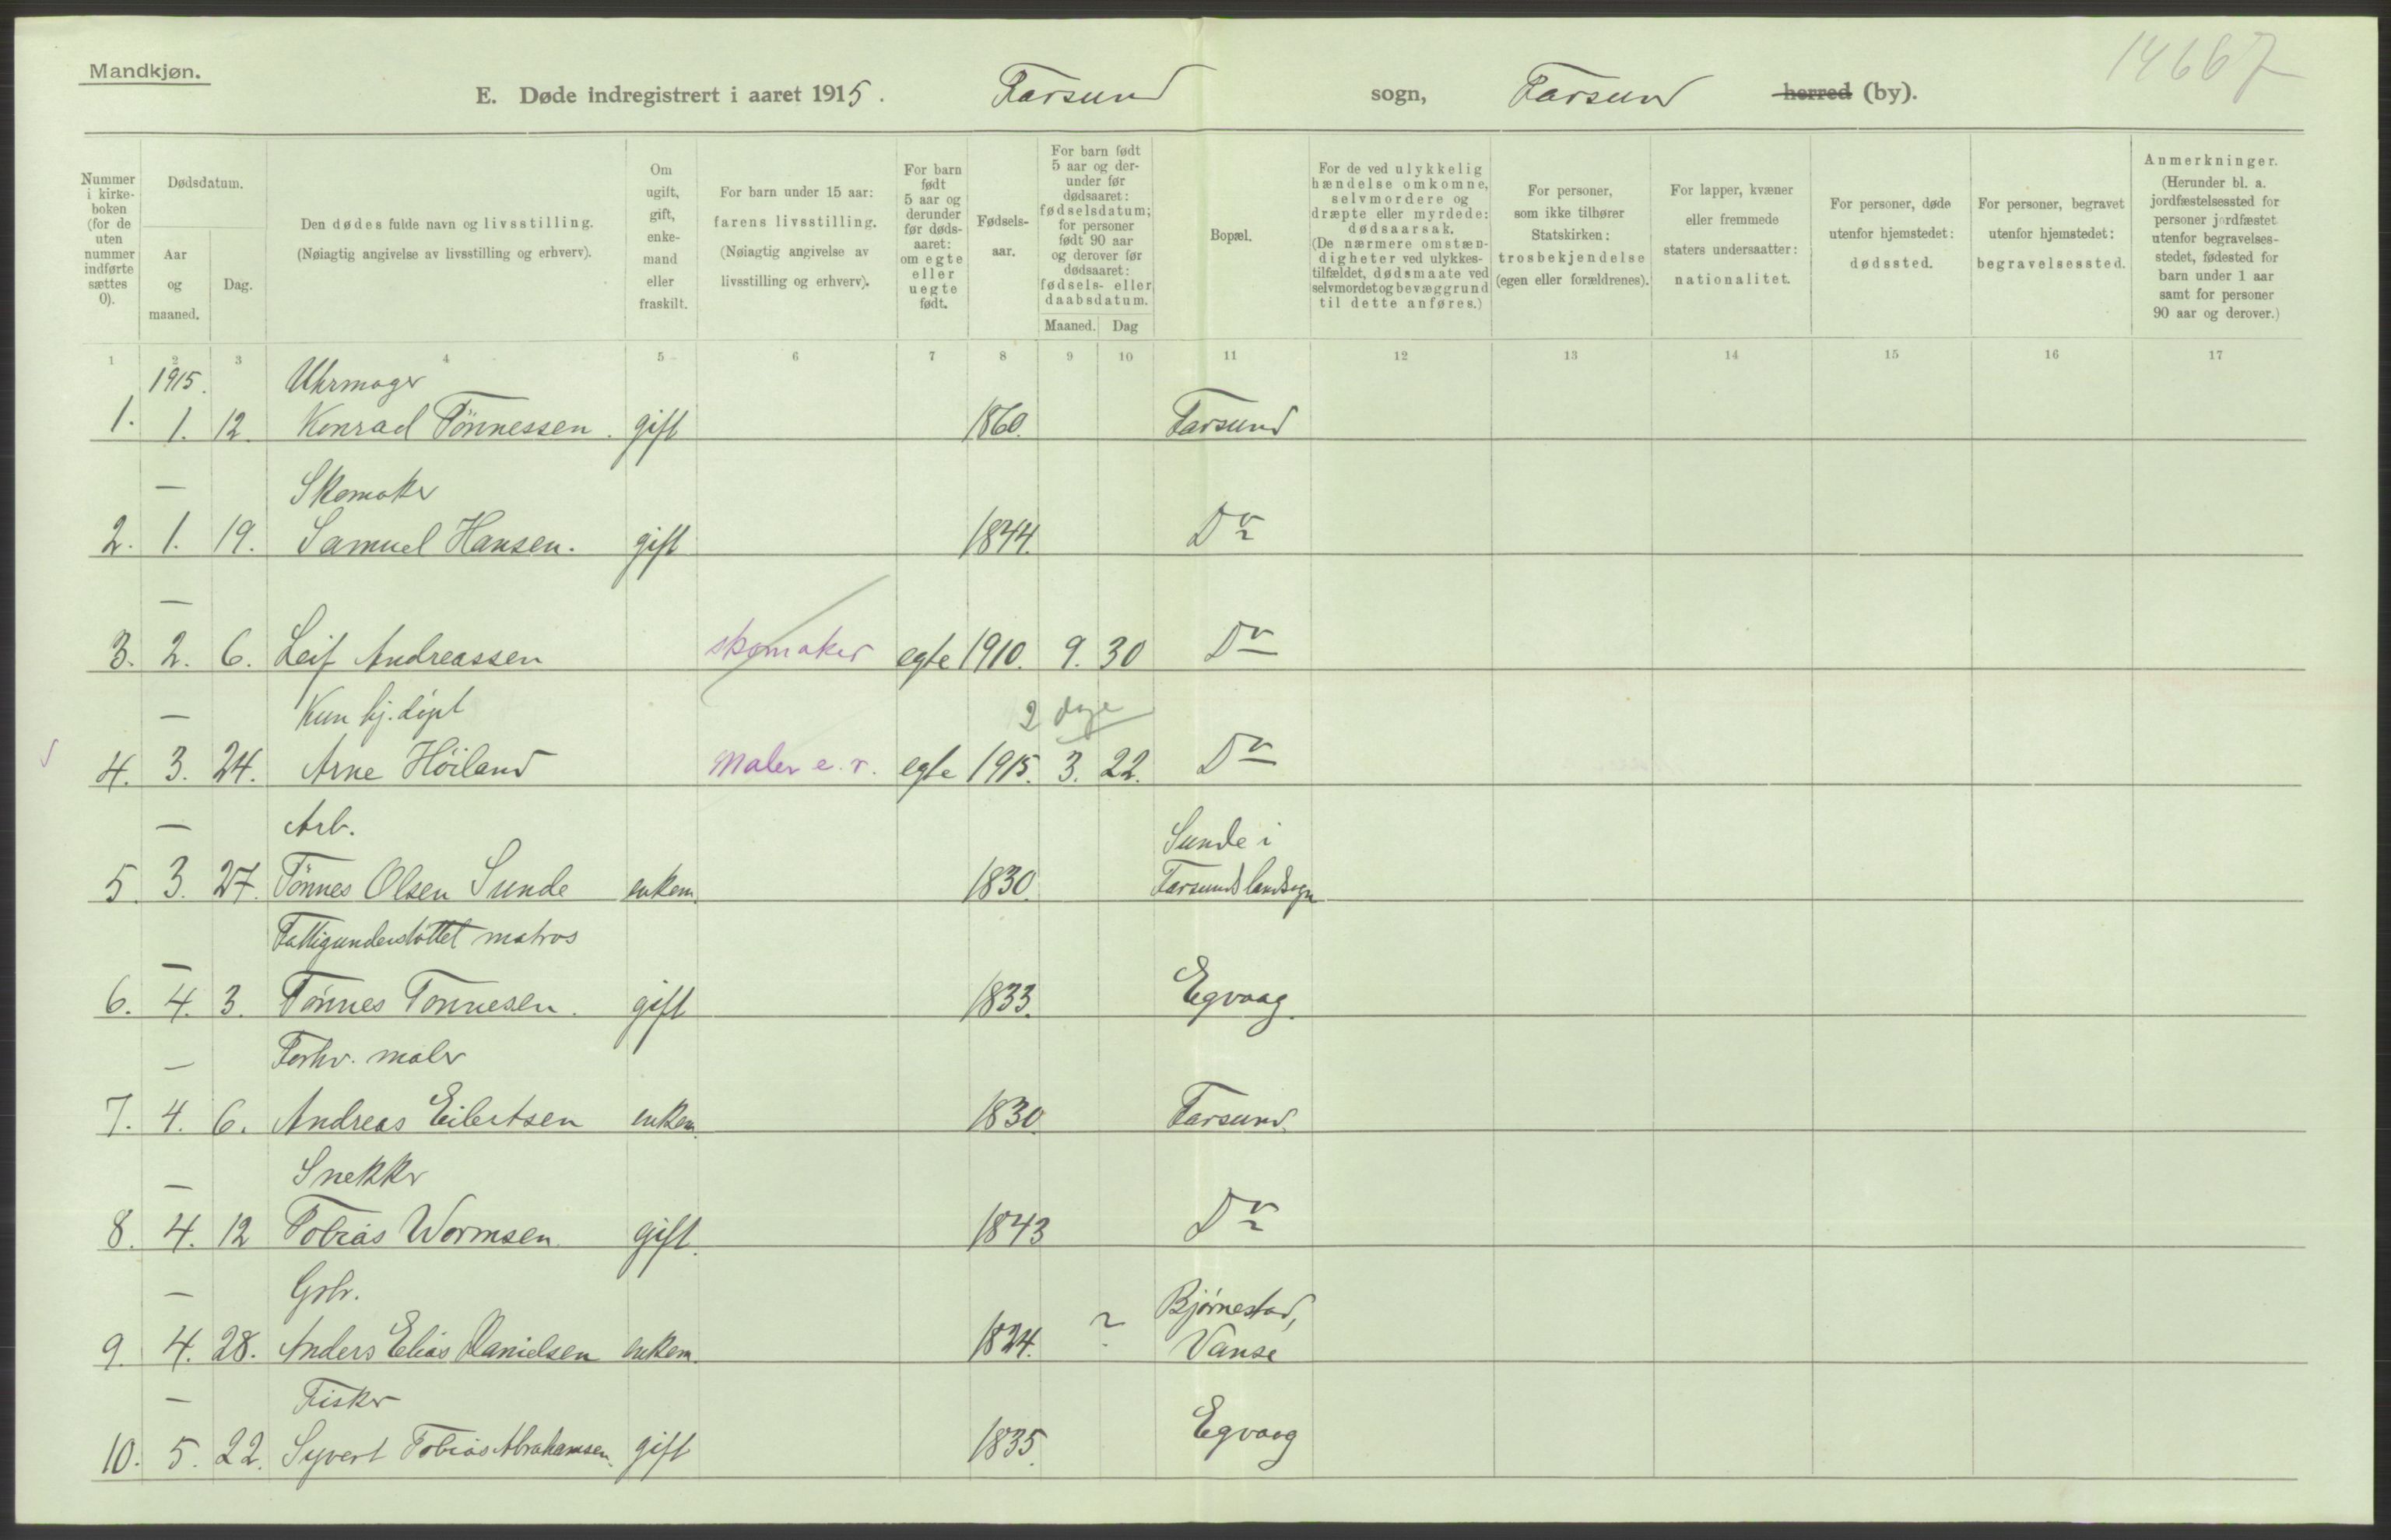 Mandkjøn.
14667
E. Døde indregistrert i aaret 1915. Farsund sogn, Farsund herred (by).
Nummer i kirke- boken (for de uten nummer indførte sættes 0).
Dødsdatum.
Aar og maaned.
Dag.
Den dødes fulde navn og livsstilling.
(Nøiagtig angivelse av livsstilling og erhverv).
Om ugift, gift, enke- mand eller fraskilt.
For barn under 15 aar: farens livsstilling. (Nøiagtig angivelse av livsstilling og erhverv).
For barn født 5 aar og derunder før døds- aaret: om egte eller uegte født.
Fødsels- aar.
For barn født 5 aar og der- under før dødsaaret: fødselsdatum; for personer født 90 aar og derover før dødsaaret: fødsels- eller daabsdatum.
Maaned. Dag
Bopæl.
For de ved ulykkelig hændelse omkomne, selvmordere og dræpte eller myrdede: dødsaarsak. (De nærmere omstæn- digheter ved ulykkes- tilfældet, dødsmaate ved selvmordet og bevæggrund til dette anføres.)
For personer, som ikke tilhører Statskirken: trosbekjendelse (egen eller forældrenes).
For lapper, kvæner eller fremmede staters undersaatter: nationalitet.
For personer, døde utenfor hjemstedet: dødssted.
For personer, begravet utenfor hjemstedet: begravelsessted.
Anmerkninger. (Herunder bl. a. jordfæstelsessted for personer jordfæstet utenfor begravelses- stedet, fødested for barn under 1 aar samt for personer 90 aar og derover.)
1 2 3 4 5 6 7 8 9 10 11 12 13 14 15 16 17
1915. Uhrmager
1. 1. 12. Konrad Tönnessen. gift 1860. Farsund
— Skomaker
2. 1. 19. Samuel Hansen. gift 1844. Do
—
3. 2. 6. Leif Andreassen skomaker egte 1910. 9. 30 Do
— Kun hj. døpt 2 dage
4. 3. 24. Arne Höiland Maler e. r. egte 1915. 3. 22. Do
— Arb. Sunde i
5. 3. 27. Tönnes Olsen Sunde enkem. 1830. Farsunds landsogn
Fattigunderstöttet matros
— 6. 4. 3. Tönnes Tönnesen. gift 1833. Egvaag.
— Forhv. maler
7. 4. 6. Andreas Eilertsen enkem. 1830. Farsund.
— Snekker
8. 4. 12 Tobias Wormsen. gift. 1843 Do
— Grbr. Bjørnestad,
9. 4. 28. Anders Elias Danielsen enkem. 1824. ? Vanse
— Fisker
10. 5. 22. Syvert Tobias Abrahamsen. gift 1835. Egvaag